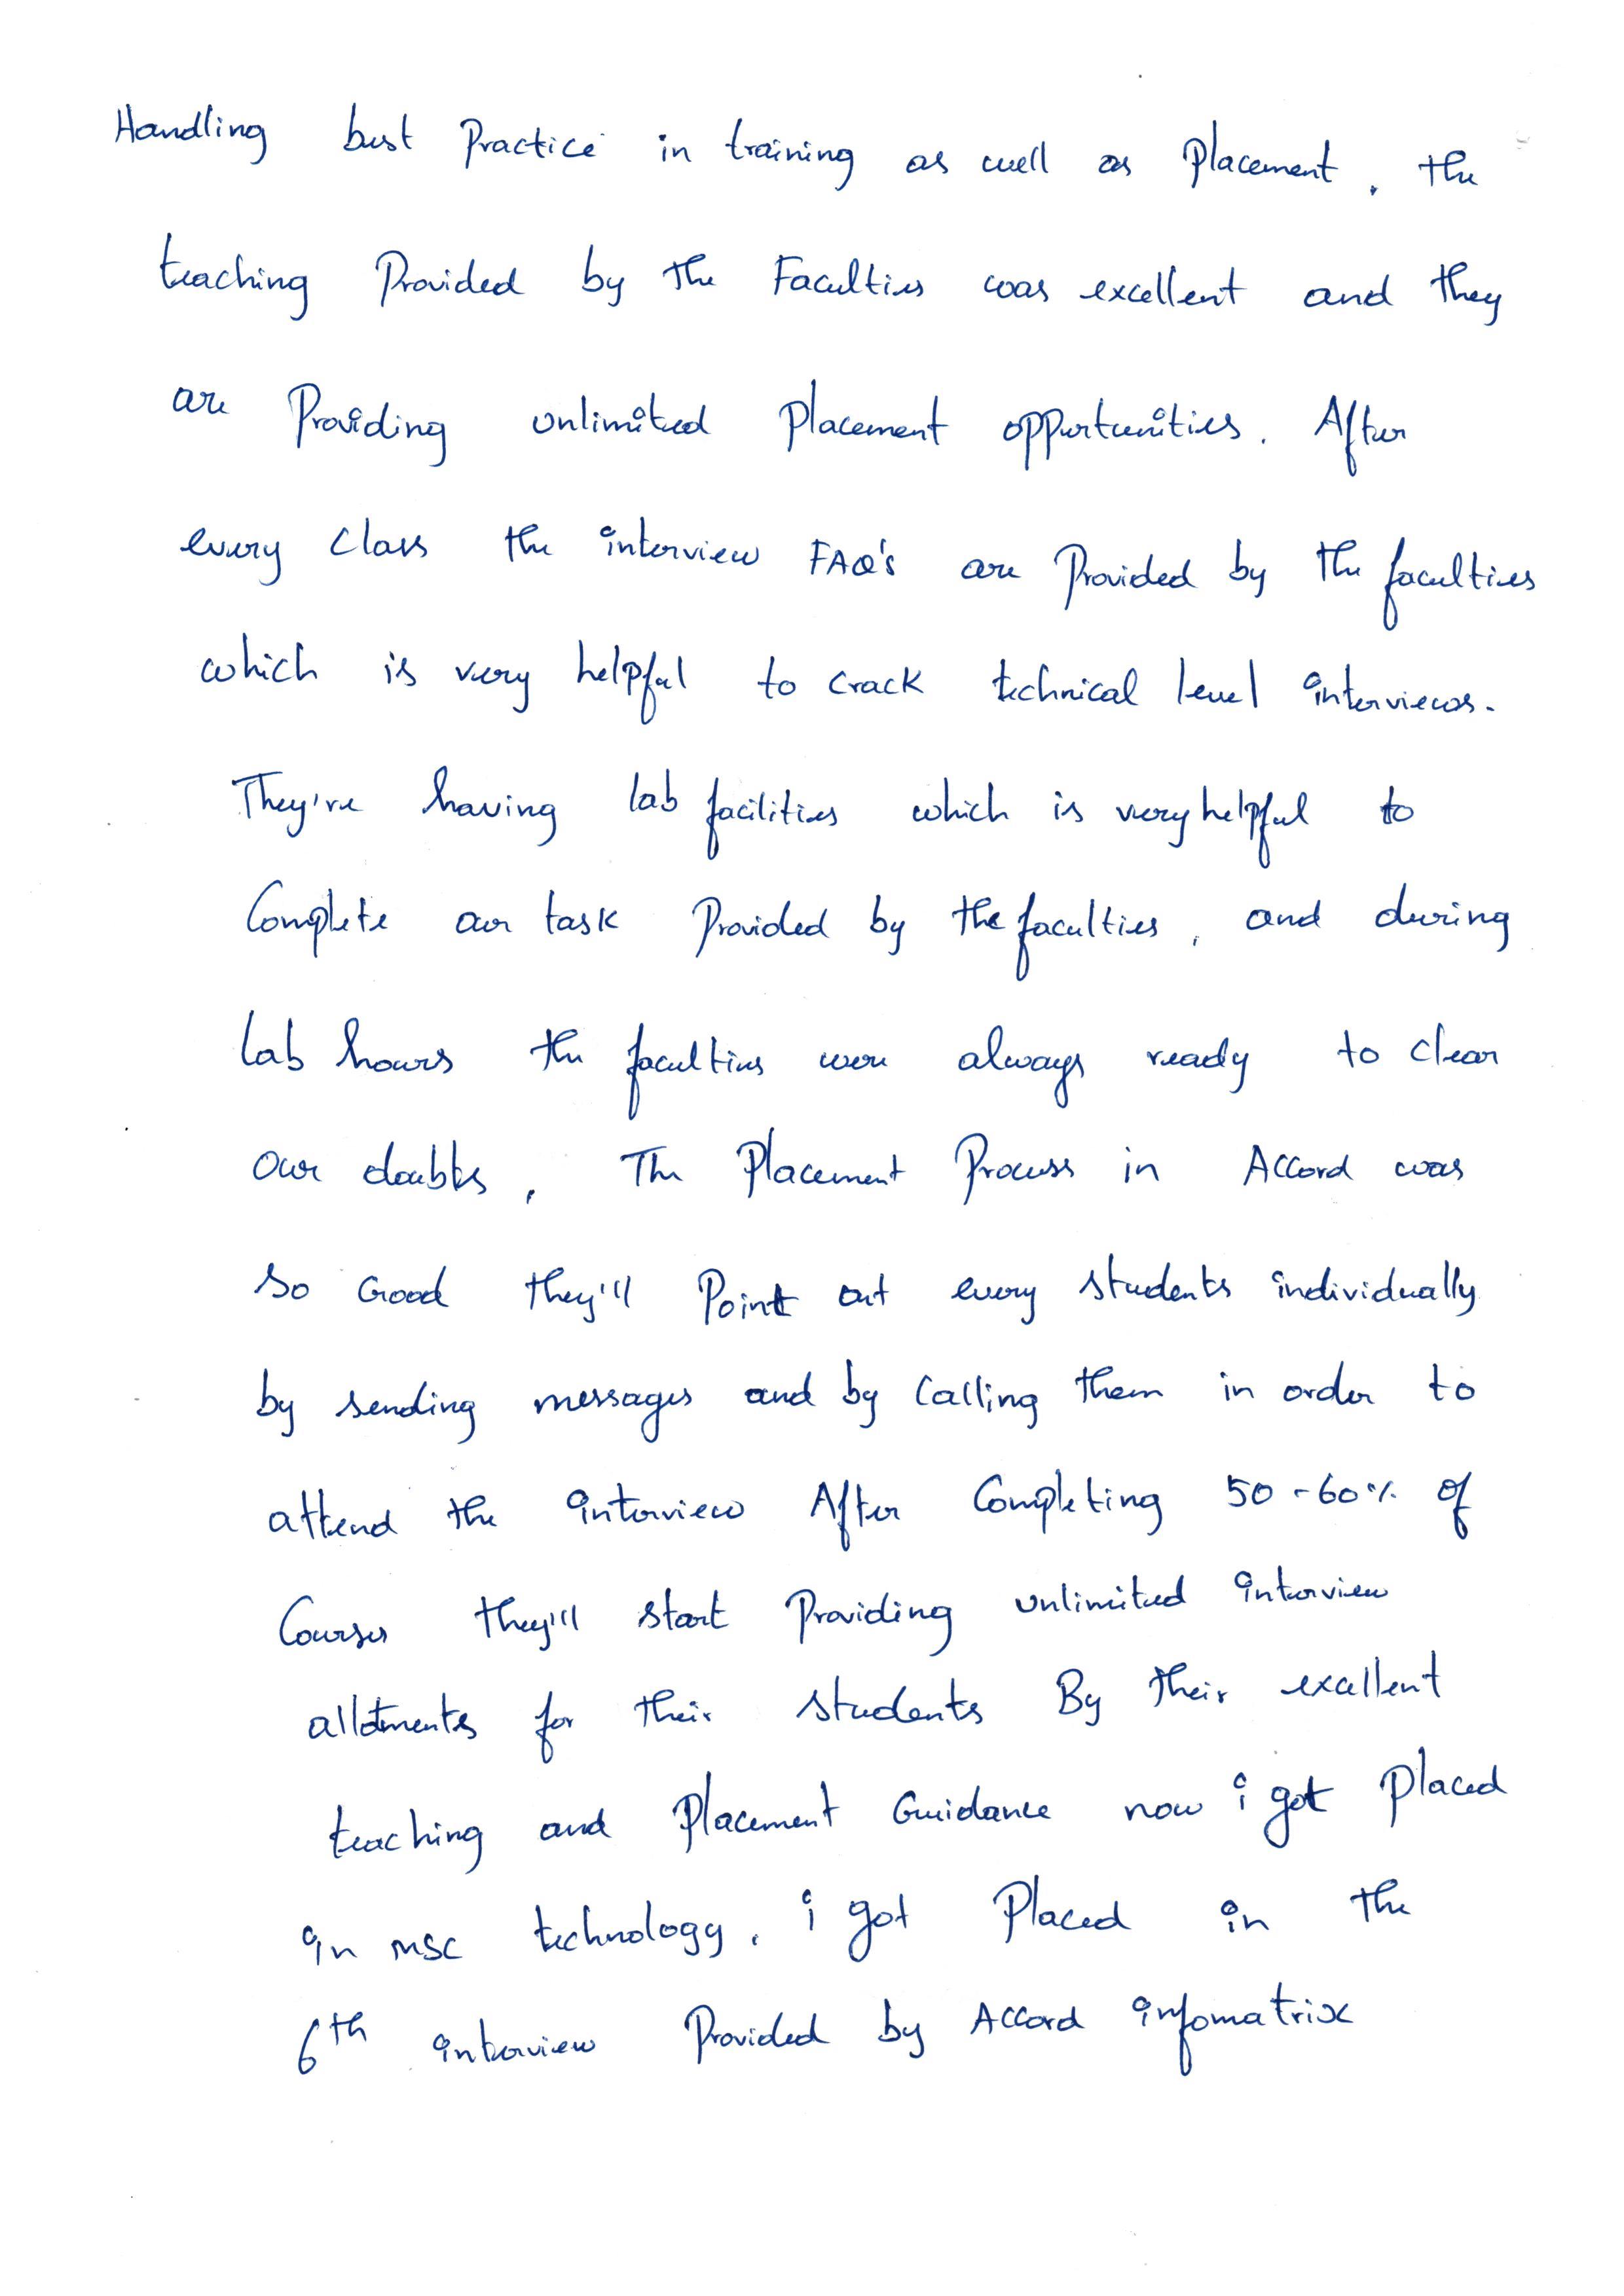 Handling best Practice in training as well as Placement, the
teaching Provided by the Faculties was excellent and they
are Providing unlimited Placement opportunities. After
every class the interview FAQ's are Provided by the faculties
which is very helpful to crack technical level interviews.
They're having lab facilities which is very helpful to
Complete our task Provided by the faculties, and during
lab hours the faculties were always ready to clear
our doubts, The Placement Process in Accord was
so Good they'll Point out every students individually
by sending messages and by calling them in order to
attend the interview After Completing 50-60% of
Courses they'll start Providing unlimited interview
allotments for their students By their excellent
teaching and Placement Guidance now i got placed
in msc technology, i got Placed in the
6th interview Provided by Accord infomatrix